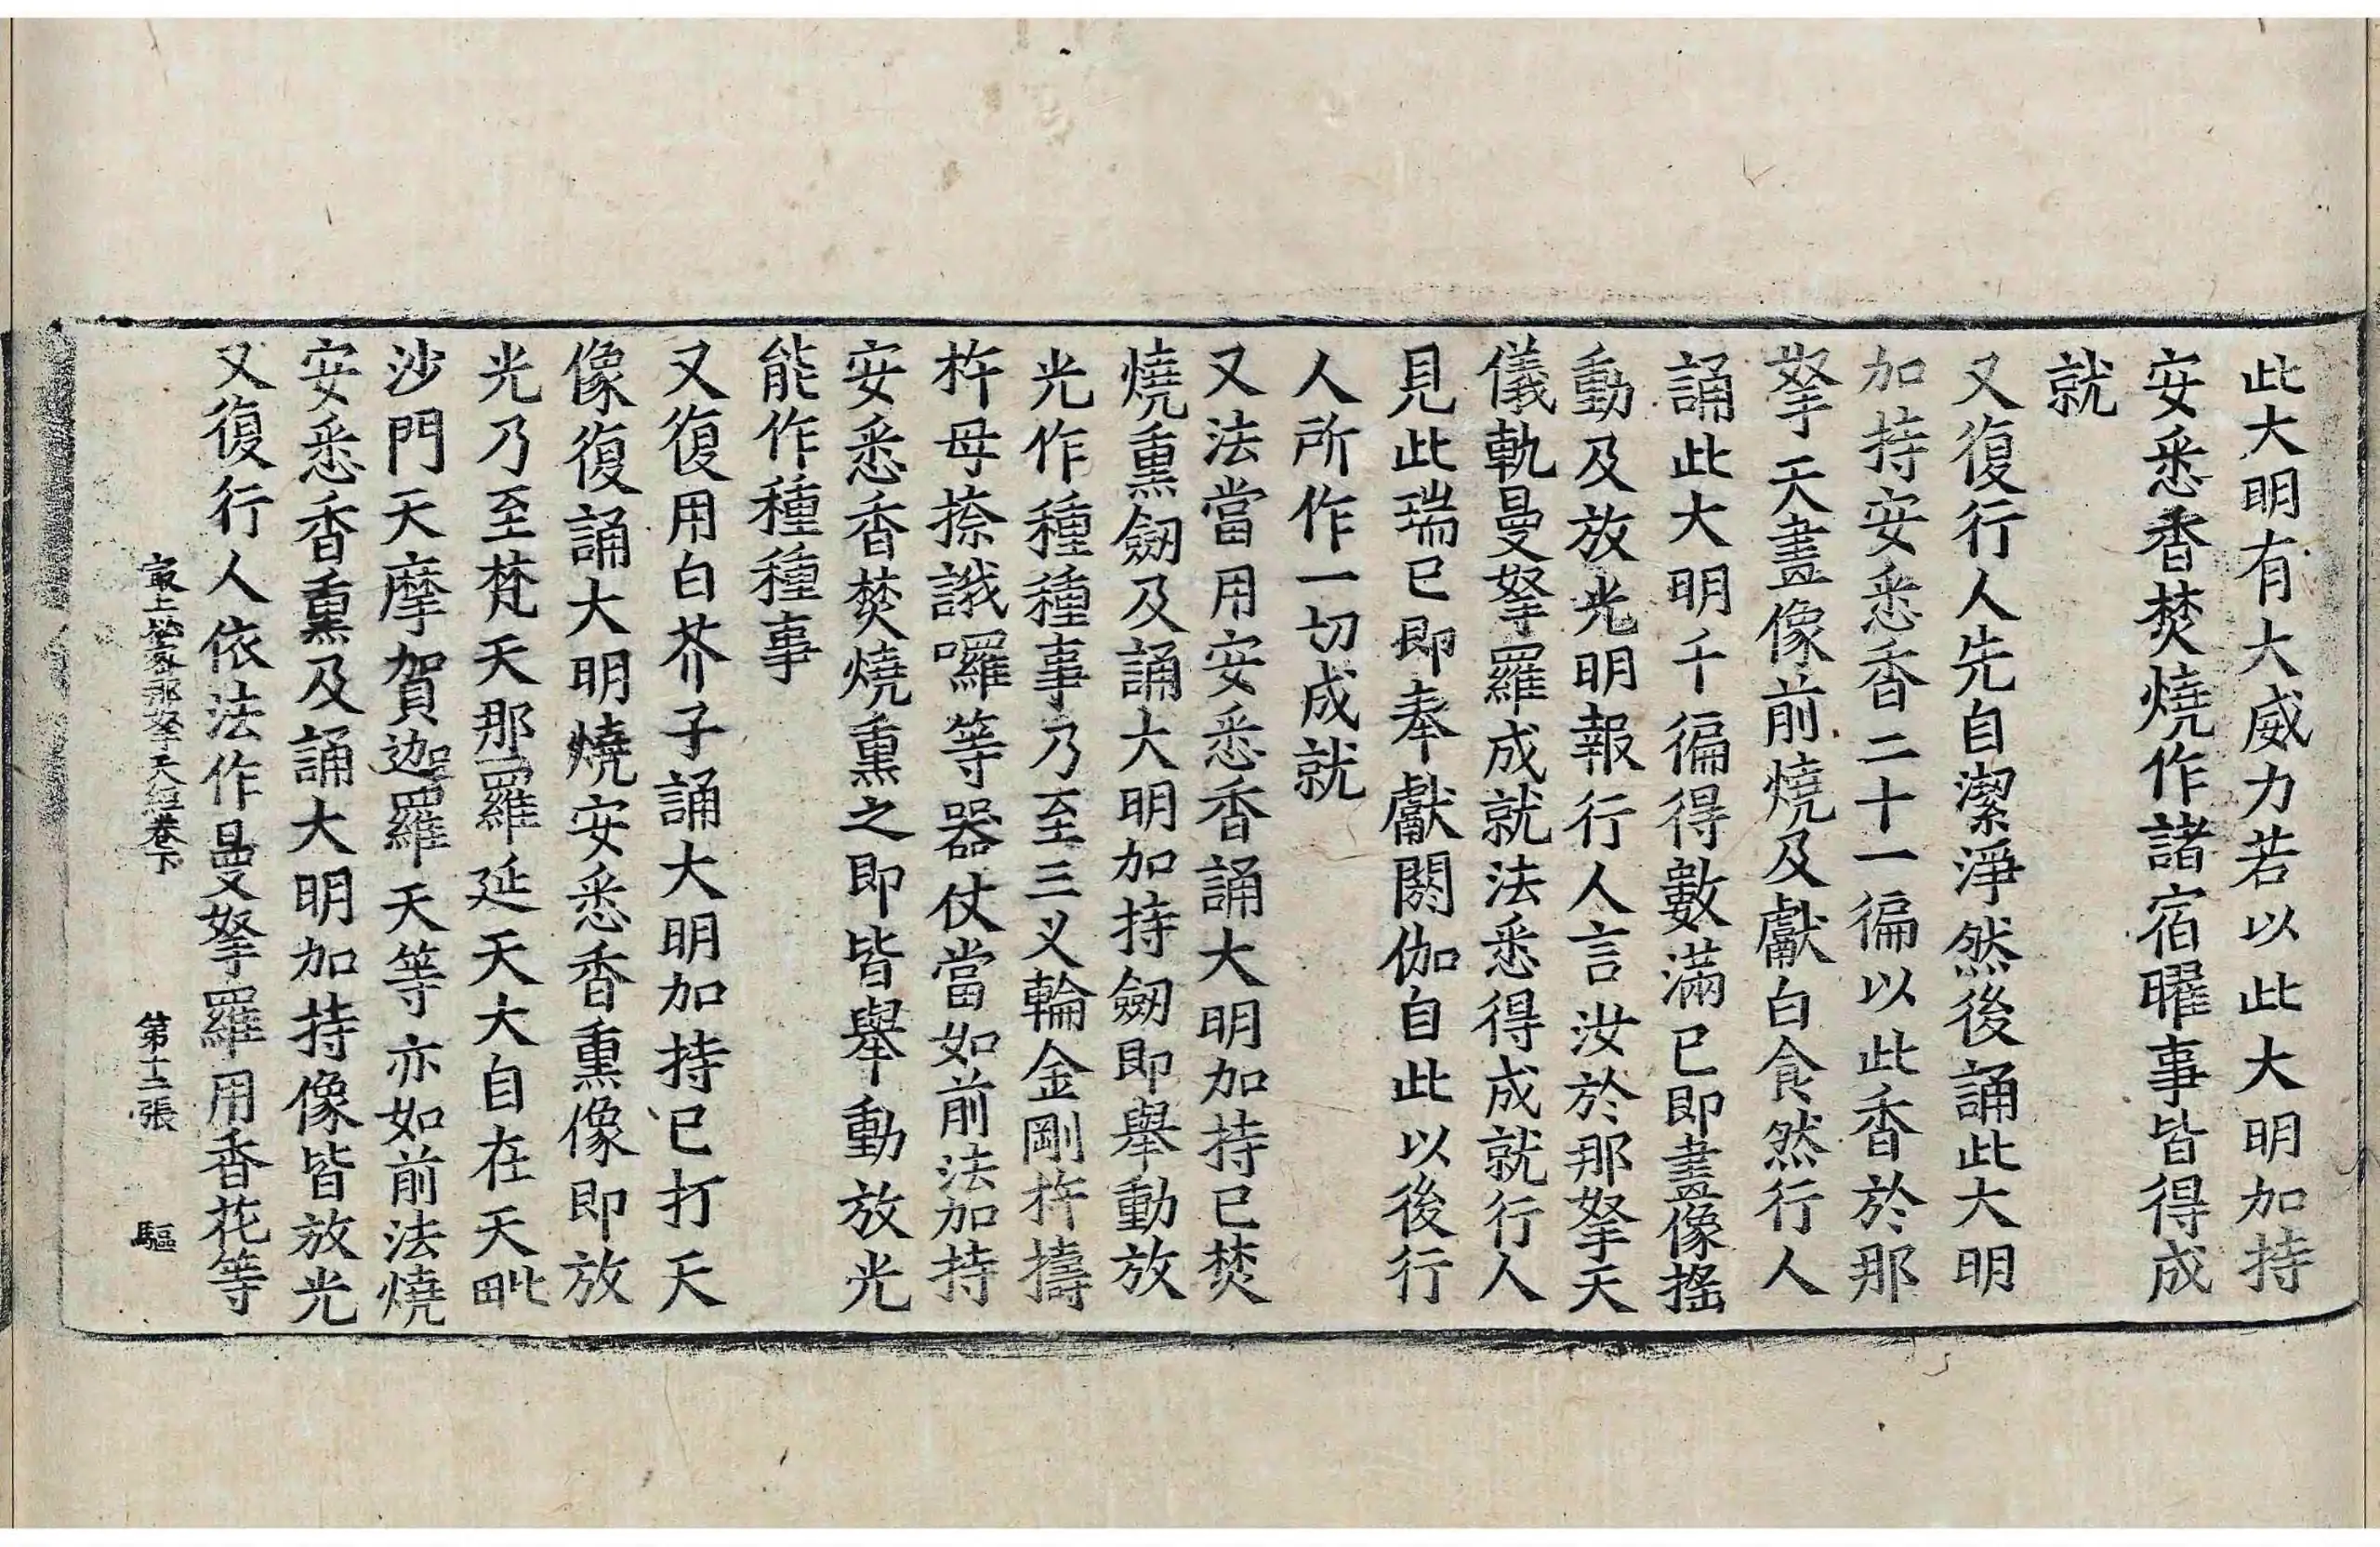 此大明有大威力若以此大明加持
安悉香焚燒作諸宿曜事皆得成
就
又復行人先自潔淨然後誦此大明
加持安悉香二十一徧以此香於那
拏天畫像前燒及獻白食然行人
誦此大明千徧得數滿已即畫像搖
動及放光明報行人言汝於那拏天
儀軌曼拏羅成就法悉得成就行人
見此瑞已即奉獻閼伽自此以後行
人所作一切成就
又法當用安悉香誦大明加持已焚
燒熏劒及誦大明加持劒即舉動放
光作種種事乃至三叉輪金剛杵擣
杵母捺誐囉等器仗當如前法加持
安悉香焚燒熏之即皆舉動放光
能作種種事
又復用白芥子誦大明加持已打天
像復誦大明燒安悉香熏像即放
光乃至梵天那羅延天大自在天毗
沙門天摩賀迦羅天等亦如前法燒
安悉香熏及誦大明加持像皆放光
又復行人依法作曼拏羅用香花等
最上祕密那拏天經卷下 第十二張 驅